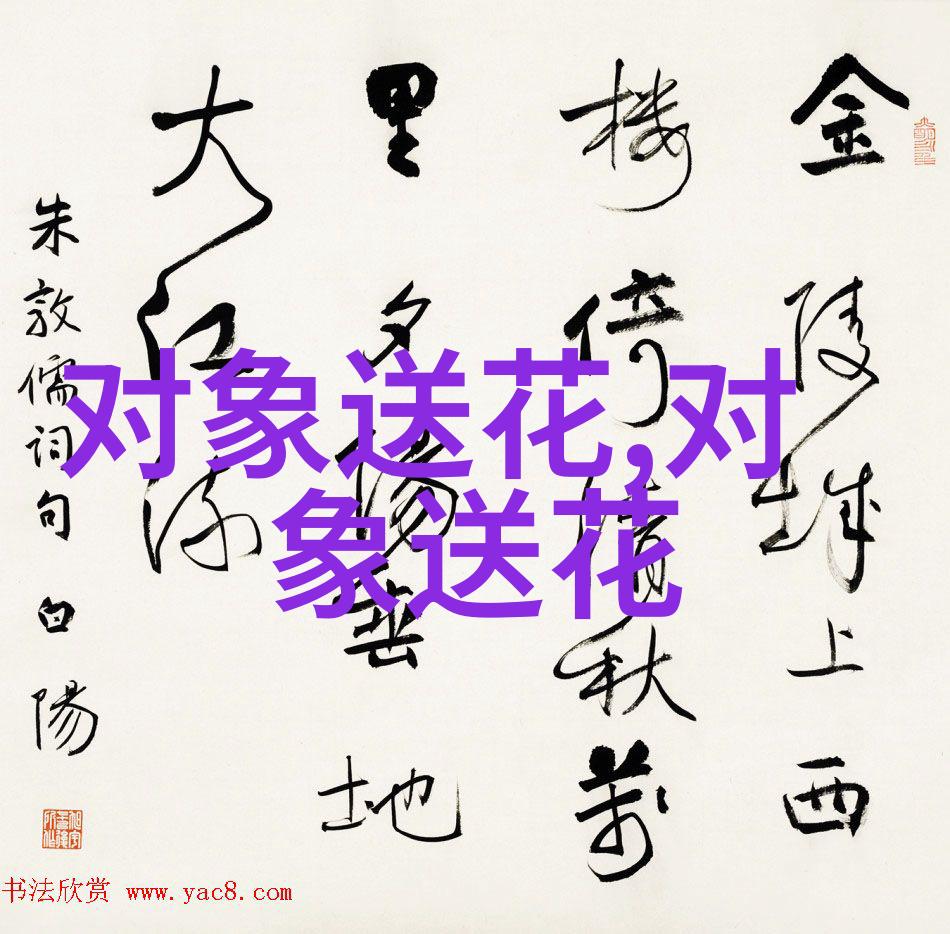 金陵城上西
楼倚清秋萬
里夕陽垂地
大江流
朱敦儒词句 白陽
对象送花,对
象送花
书法欣赏 www.yac8.com